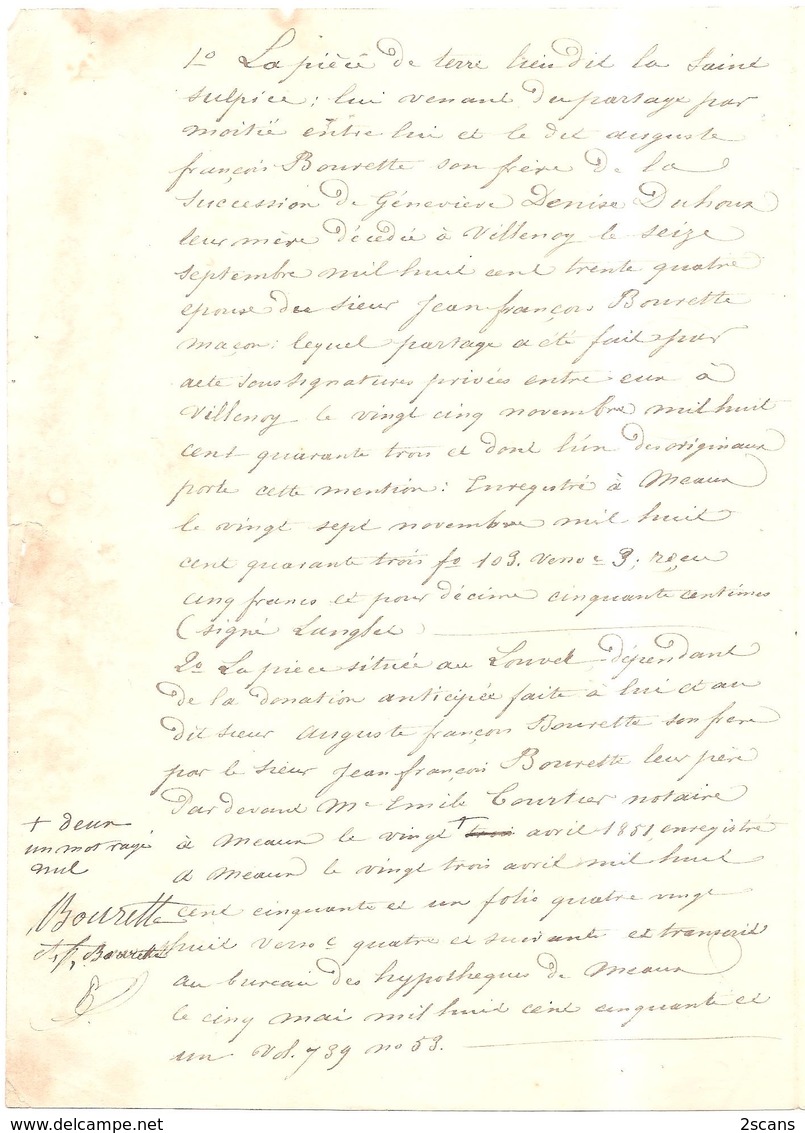 1o La pièce de terre lieu dit la Saint
sulpice ; lui venant du partage par
moitié entre lui et le dit auguste
françois Bourette son frère de la
succession de Géneviève Denise Duhoux
leur mère décedée à Villenoy le seize
septembre mil huit cent trente quatre
epouse du sieur Jean françois Bourette
maçon : lequel partage a été fait par
acte sous signatures privées entre eux à
Villenoy le vingt cinq novembre mil huit
cent quarante trois et dont l'un des originaux
porte cette mention : Enregistré à Meaux
le vingt sept novembre mil huit
cent quarante trois fo 103. verso c 3 ; reçu
cinq francs et pour décime cinquante centimes
( signé Langlet )
2o La pièce située au Louvet dépendant
de la donation anticipée faite à lui et au
dit sieur auguste françois Bourette son frère
par le sieur Jean françois Bourette leur père
Par devant Me Emile Courtier notaire
à Meaux le vingt + avril 1851, enregistré
a Meaux le vingt trois avril mil huit
cent cinquante et un folio quatre vingt
huit verso c quatre et suivants et transcrit
au bureau des hypotheques de Meaux
le cinq mai mil huit cent cinquante et
un Vol. 739 no 53.
+ deux
un mot rayé
nul
Bourette
Bourette
B
2scans